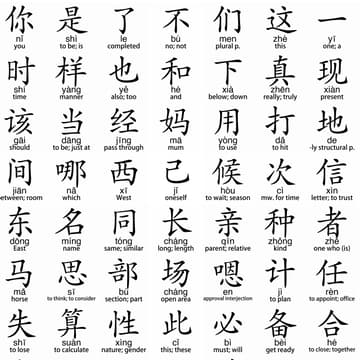 你 是 了 不 们 这 一
nǐ shì le bù men zhè yī
you to be; is completed no; not plural p. this one; a
时 样 也 和 下 真 现
shí yàng yě hé xià zhēn xiàn
time manner also; too and below; down really; truly present
该 当 经 妈 用 打 地
gāi dāng jīng mā yòng dǎ de
should to be; just at pass through mum to use to hit -ly structural p.
间 哪 西 己 候 次 信
jiān nǎ xī jǐ hòu cì xìn
etween; room which West oneself to wait; season mw. for time letter; to trust
东 名 同 长 亲 种 者
dōng míng tóng cháng qīn zhǒng zhě
East name same; similar long; length parent; relative kind one who (is)
马 思 部 场 嗯 计 任
mǎ sī bù chǎng en jì rèn
horse to think; to consider section; part open area approval interjection to plan to appoint; office
失 算 性 此 必 备 合
shī suàn xìng cǐ bì bèi hé
to lose to calculate nature; gender this; these must; will get ready to close; together